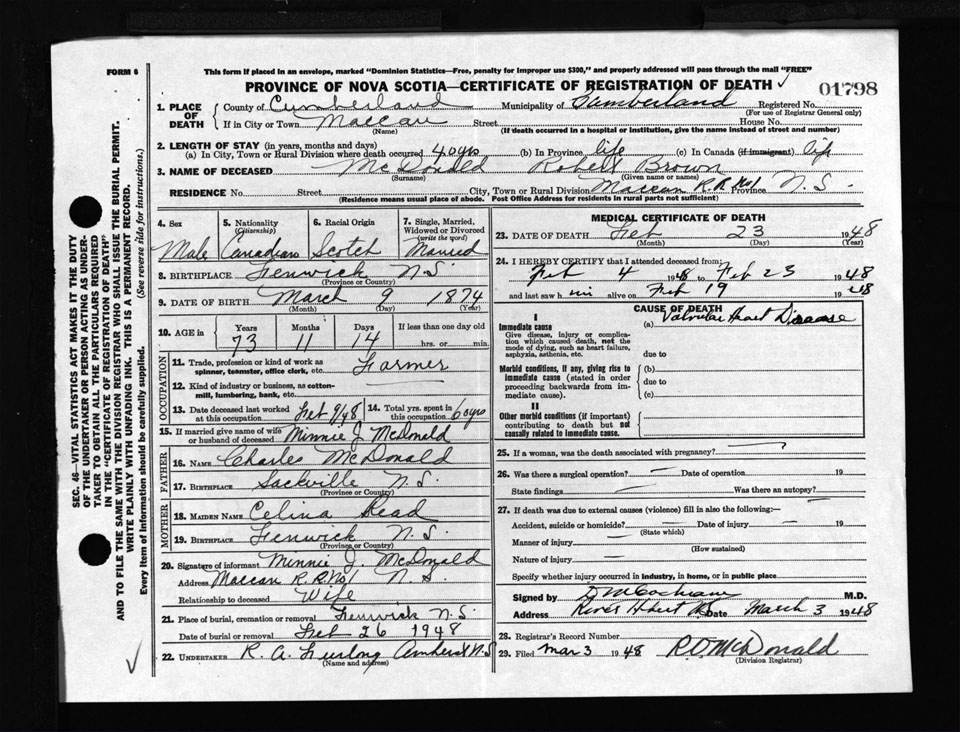 FORM 6
This form if placed in an envelope, marked "Dominion Statistics—Free, penalty for improper use $300," and properly addressed will pass through the mail "FREE"
PROVINCE OF NOVA SCOTIA—CERTIFICATE OF REGISTRATION OF DEATH ✓
01798
1. PLACE OF DEATH
County of Cumberland Municipality of Cumberland Registered No.
(For use of Registrar General only)
If in City or Town Maccan Street House No.
(Name) (If death occurred in a hospital or institution, give the name instead of street and number)
2. LENGTH OF STAY (in years, months and days)
(a) In City, Town or Rural Division where death occurred 40 yrs (b) In Province life (c) In Canada (if immigrant) life
3. NAME OF DECEASED McDonald Robert Brown
(Surname) (Given name or names)
RESIDENCE No. Street City, Town or Rural Division Maccan R.R. No 1 Province N.S.
(Residence means usual place of abode. Post Office Address for residents in rural parts not sufficient)
4. Sex
Male
5. Nationality
(Citizenship)
Canadian
6. Racial Origin
Scotch
7. Single, Married, Widowed or Divorced
(write the word)
Married
8. BIRTHPLACE Fenwick N.S.
(Province or Country)
9. DATE OF BIRTH March 9 1874
(Month) (Day) (Year)
10. AGE in
Years Months Days If less than one day old
73 11 14 hrs. or min.
OCCUPATION
11. Trade, profession or kind of work as spinner, teamster, office clerk, etc. Farmer
12. Kind of industry or business, as cotton-mill, lumbering, bank, etc.
13. Date deceased last worked at this occupation Feb 9/48
14. Total yrs. spent in this occupation 60 yrs
15. If married give name of wife or husband of deceased Minnie J. McDonald
FATHER
16. NAME Charles McDonald
17. BIRTHPLACE Sackville N.S.
(Province or Country)
MOTHER
18. MAIDEN NAME Celina Read
19. BIRTHPLACE Fenwick N.S.
(Province or Country)
20. Signature of informant Minnie J. McDonald
Address Maccan R.R. No 1 N.S.
Relationship to deceased Wife
21. Place of burial, cremation or removal Fenwick N.S.
Date of burial or removal Feb 26 1948
22. UNDERTAKER R. A. Furlong Amherst N.S
(Name and address)
MEDICAL CERTIFICATE OF DEATH
23. DATE OF DEATH Feb 23 1948
(Month) (Day) (Year)
24. I HEREBY CERTIFY that I attended deceased from:
Feb 4 1948 to Feb 23 1948
and last saw him alive on Feb 19 1948
CAUSE OF DEATH
I
Immediate cause
Give disease, injury or complication which caused death, not the mode of dying, such as heart failure, asphyxia, asthenia, etc.
(a) Valvular Heart Disease
due to
Morbid conditions, if any, giving rise to immediate cause (stated in order proceeding backwards from immediate cause).
(b)
due to
(c)
II
Other morbid conditions (if important) contributing to death but not causally related to immediate cause.
25. If a woman, was the death associated with pregnancy?
26. Was there a surgical operation? — Date of operation 19
State findings — Was there an autopsy? —
27. If death was due to external causes (violence) fill in also the following:—
Accident, suicide or homicide? — Date of injury — 19
(State which)
Manner of injury —
(How sustained)
Nature of injury —
Specify whether injury occurred in industry, in home, or in public place
Signed by D M Cochrane M.D.
Address River Hebert NS Date March 3 1948
28. Registrar's Record Number
29. Filed Mar 3 1948 R.O. McDonald
(Division Registrar)
SEC. 46—VITAL STATISTICS ACT MAKES IT THE DUTY
OF THE UNDERTAKER OR PERSON ACTING AS UNDER-
TAKER TO OBTAIN ALL THE PARTICULARS REQUIRED
IN THE "CERTIFICATE OF REGISTRATION OF DEATH"
AND TO FILE THE SAME WITH THE DIVISION REGISTRAR WHO SHALL ISSUE THE BURIAL PERMIT.
WRITE PLAINLY WITH UNFADING INK. THIS IS A PERMANENT RECORD.
Every item of information should be carefully supplied. (See reverse side for instructions.)
✓